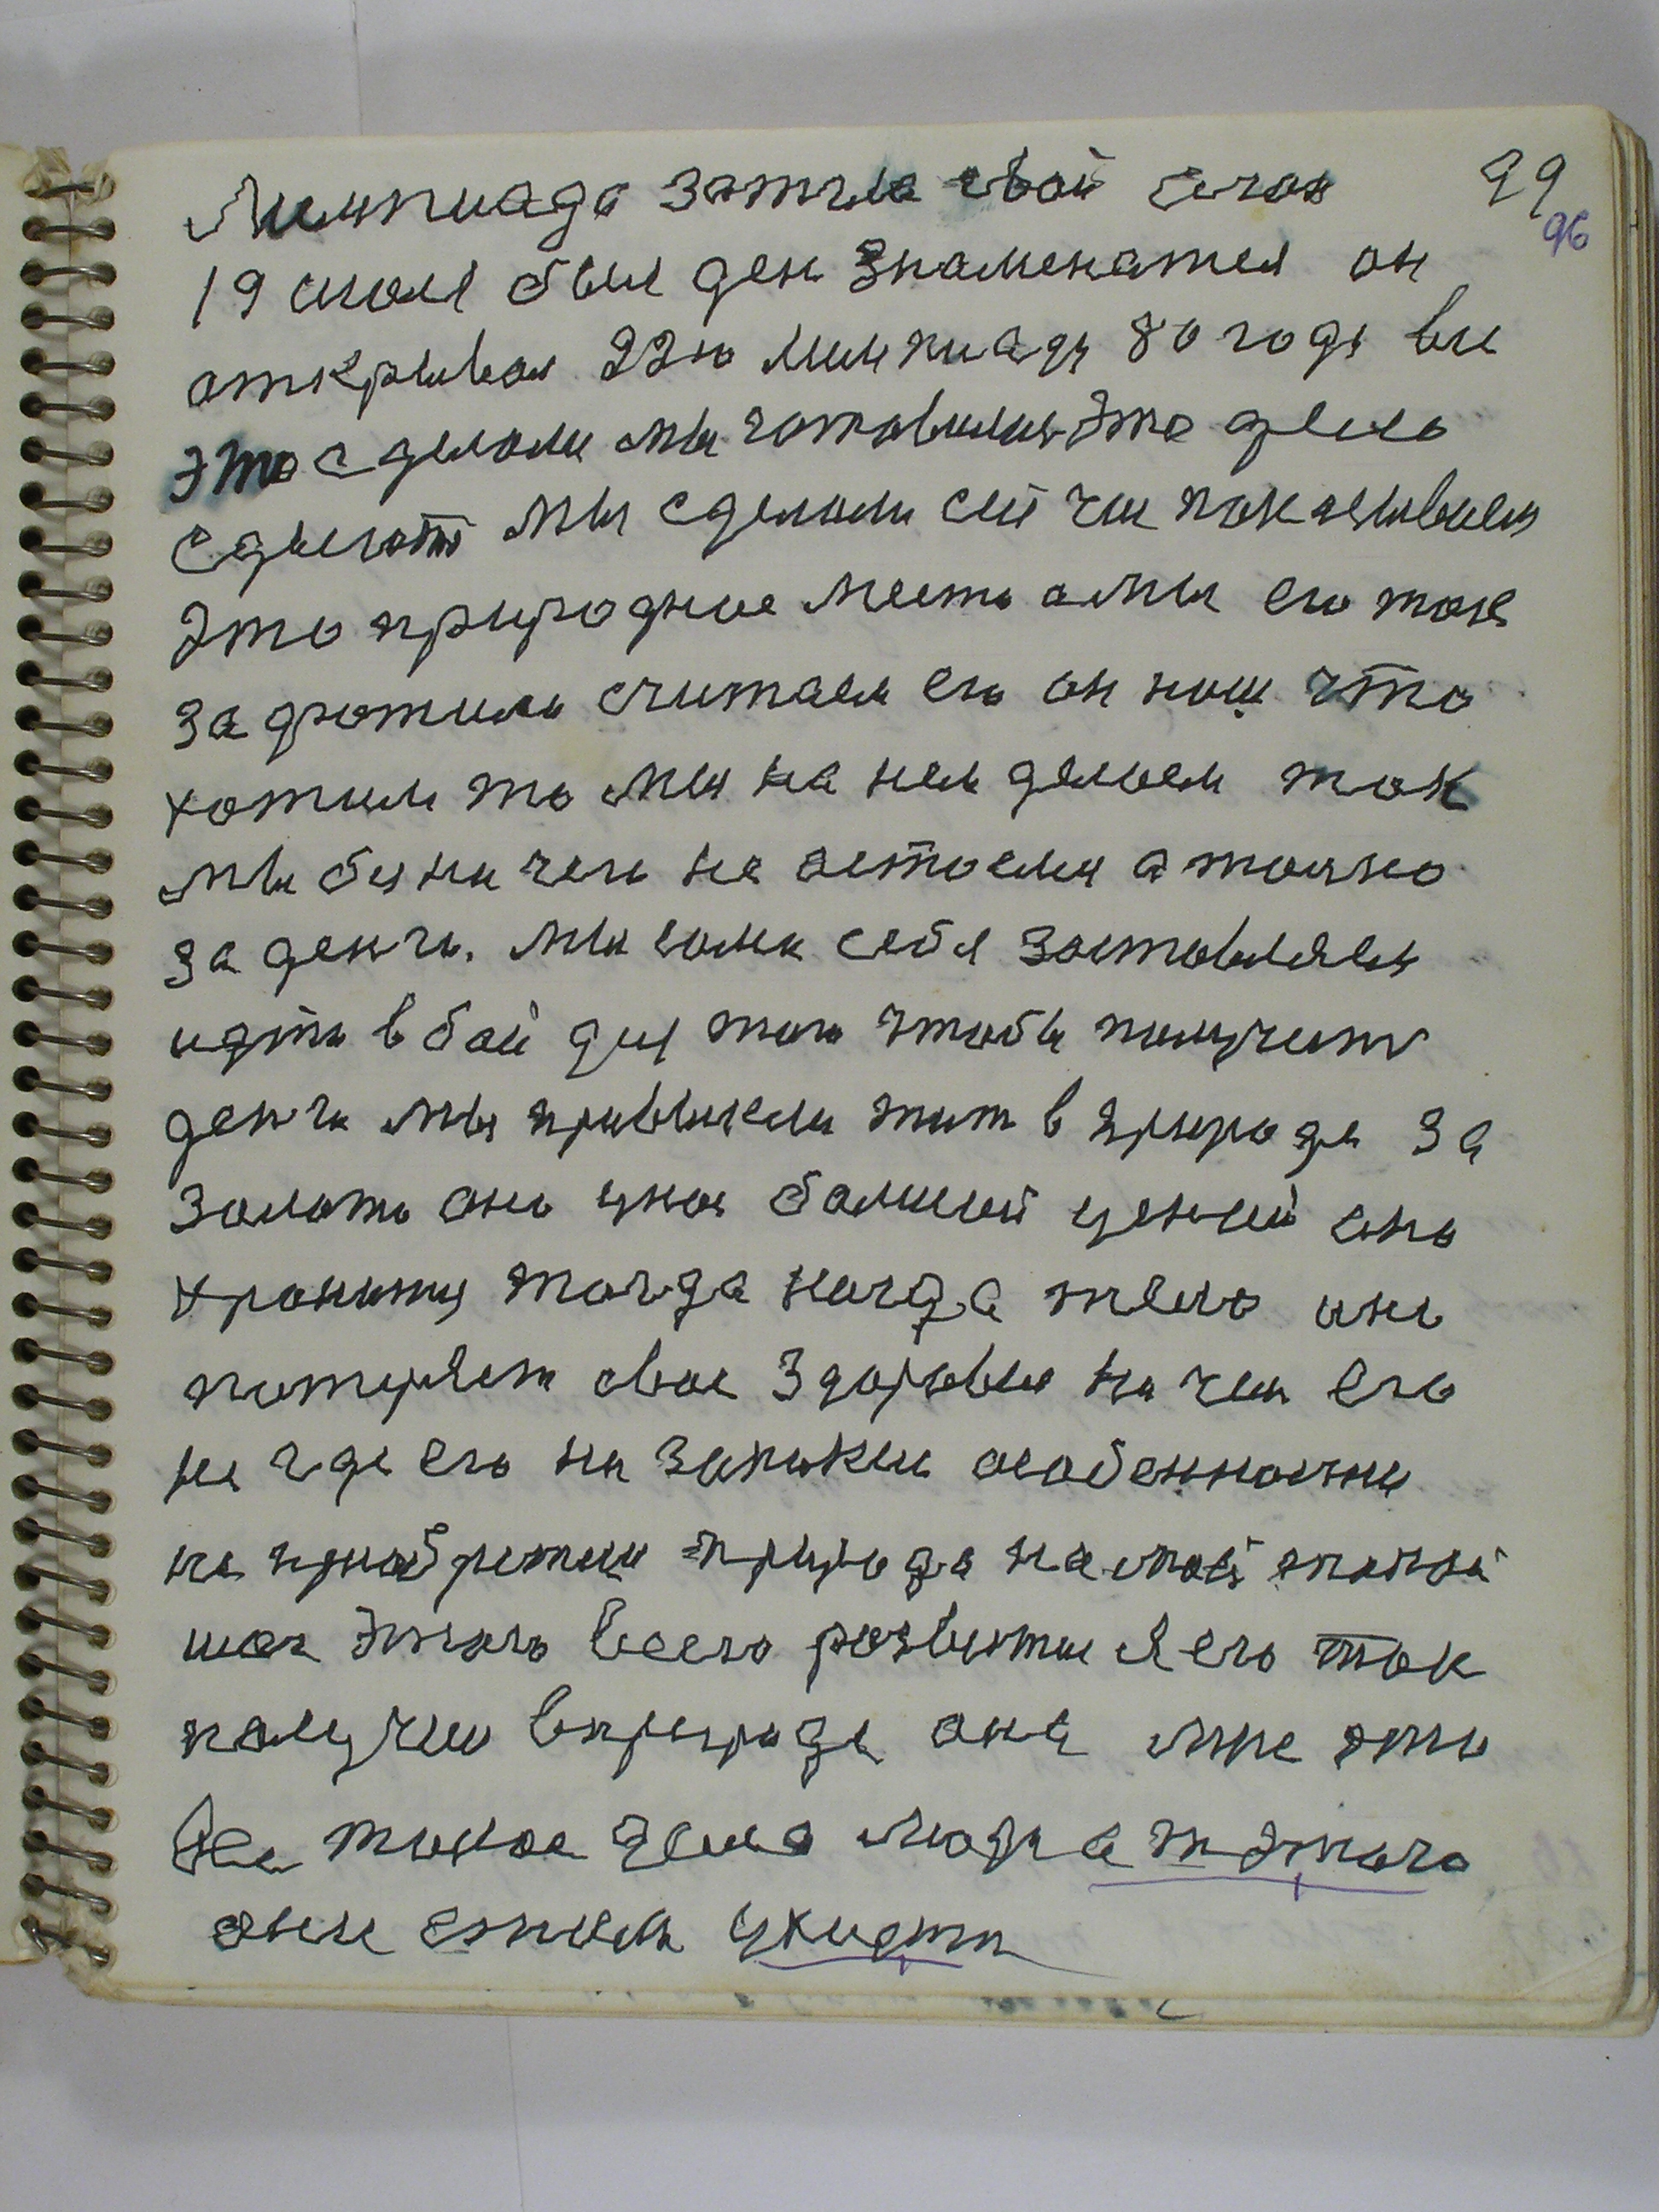 Лимпиада зотгла свой огон 99
96
19 июля был ден знаменател он
открывал 22ю лимпиаду 80 года вы
это сделоли мы готовилис это дело
сделот мы сделоли сейчас показываем
это природное место а мы его так
за фотили считаем его он наш что
хотим то мы на нем делоем так
мы без ничего не астоемся а толко
за денги. мы соми себя заставляем
идти в бой для того чтобы получит
денги мы привыкли жит в природе за
золото оно у нас болший ценний оно
хронится тогда когда тело оно
потеряет свое здоровия ни чем его
не где его ни запихнеш особенности
не приобретеш природа на мой такой
шаг этого всего розвития его так
получил в природе она мне это
Все такое дело людя а т этого
они этим ухидти